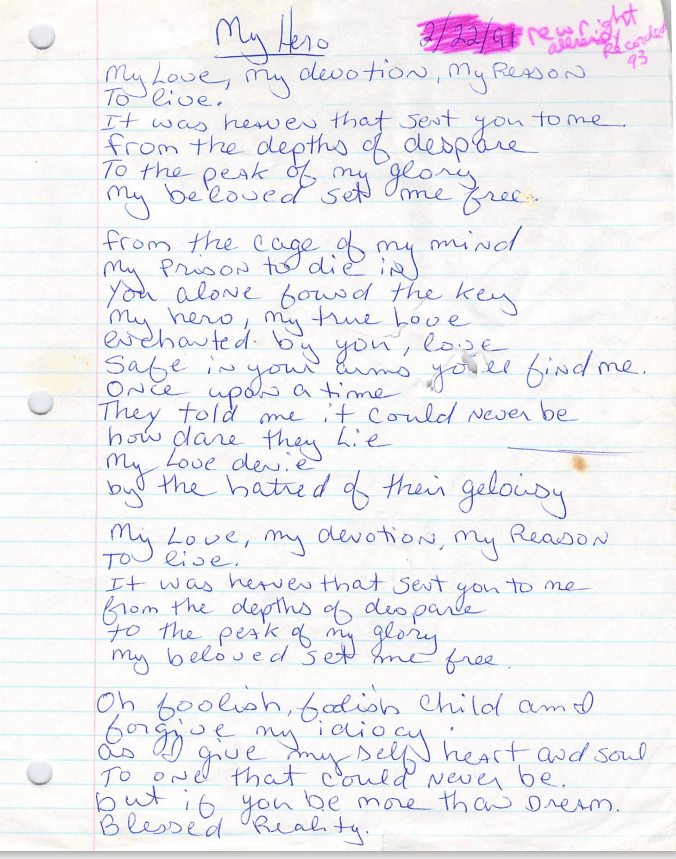 My Hero 2/22/91 new right
Recorded
93
My Love, my devotion, My Reason
To live.
It was heaven that sent you to me.
from the depths of despare
To the peak of my glory
My beloved set me free.
from the cage of my mind
My Prison to die in
You alone found the key
My hero, my true Love
enchanted by you, love
Safe in your arms you'll find me.
Once upon a time
They told me it could never be
how dare they Lie
My Love denie
by the hatred of their gelousy
My Love, my devotion, my Reason
To live.
It was heaven that sent you to me
from the depths of despare
to the peak of my glory
my beloved set me free.
Oh foolish, foolish child am I
forgive my idiocy.
as I give my self heart and soul
To one that could never be.
but if you be more than Dream.
Blessed Reality.